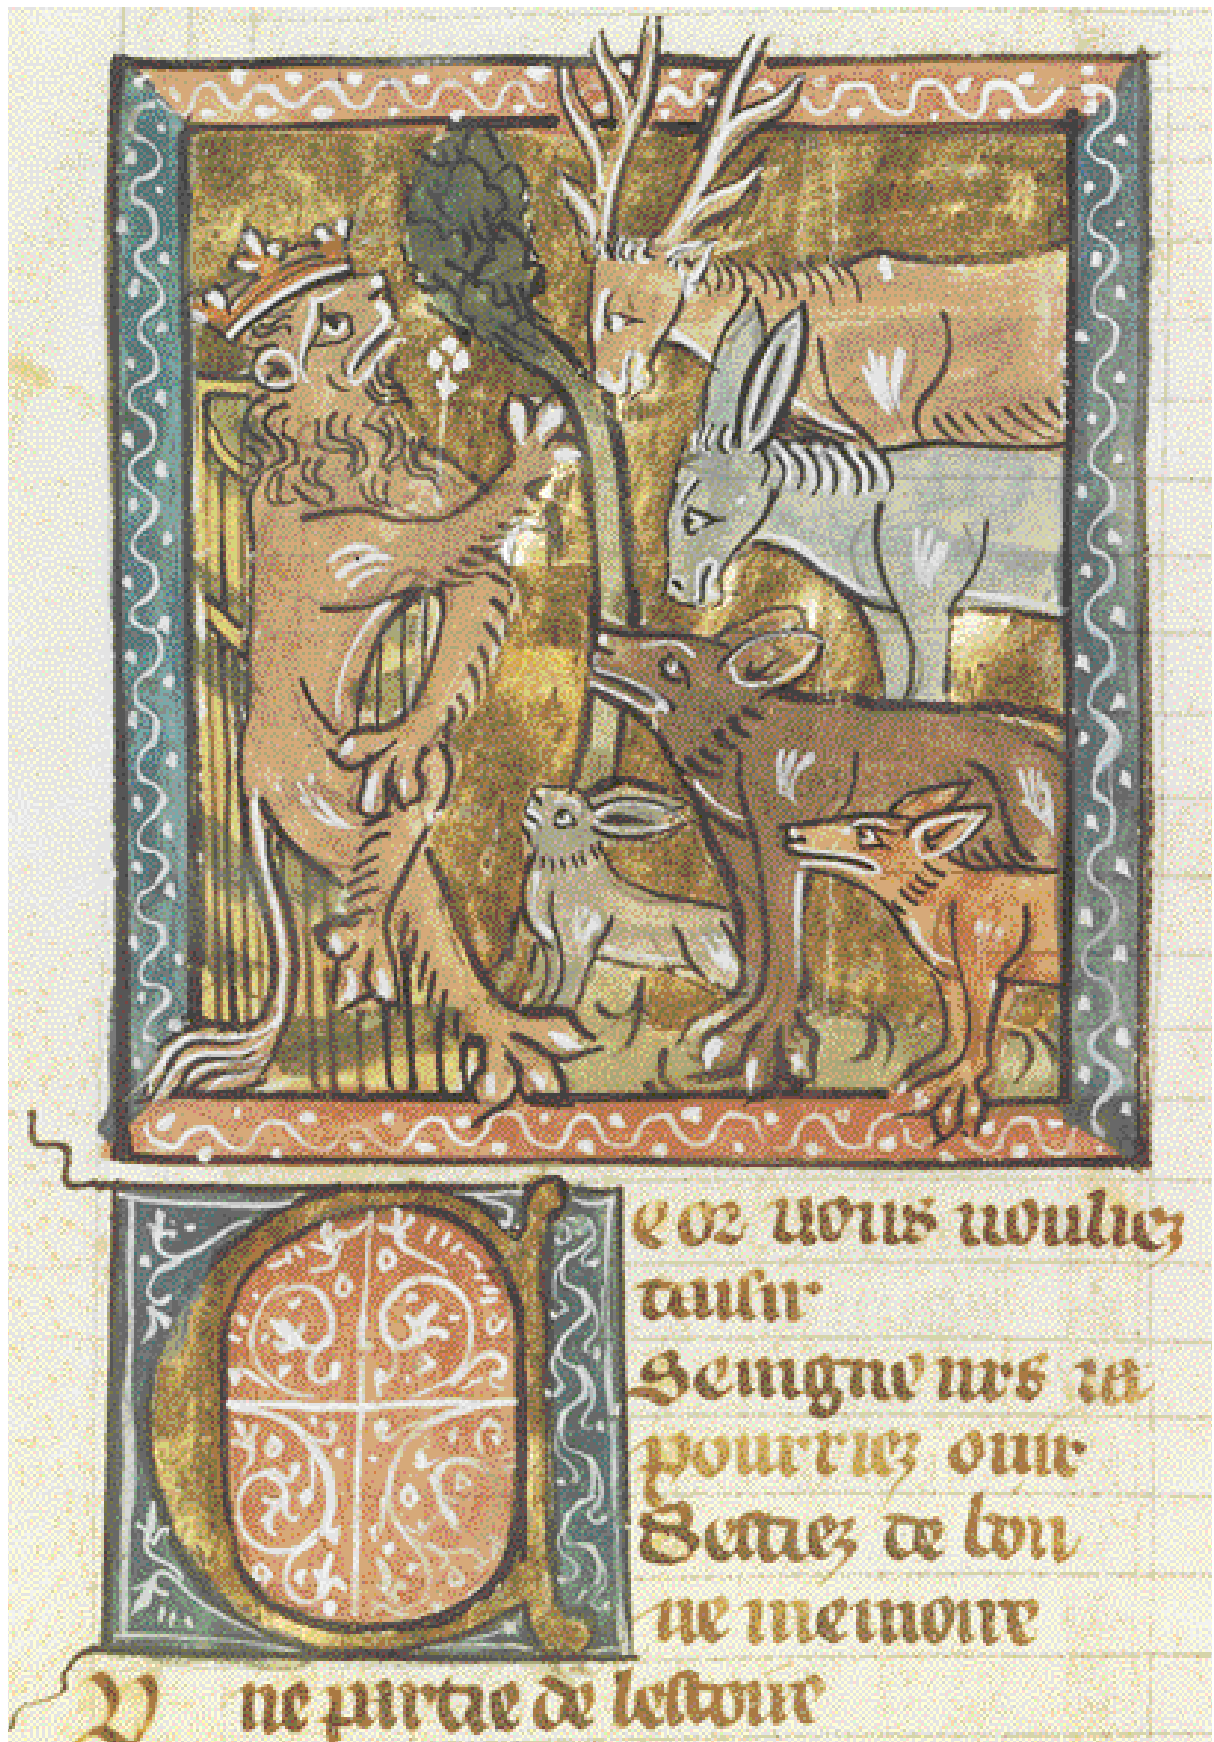 Ceor uous uouliez
taisir
Seingneurs ia
pourriez ouir
Sestiez de bon
ne memoire
Vne partie de lestoire